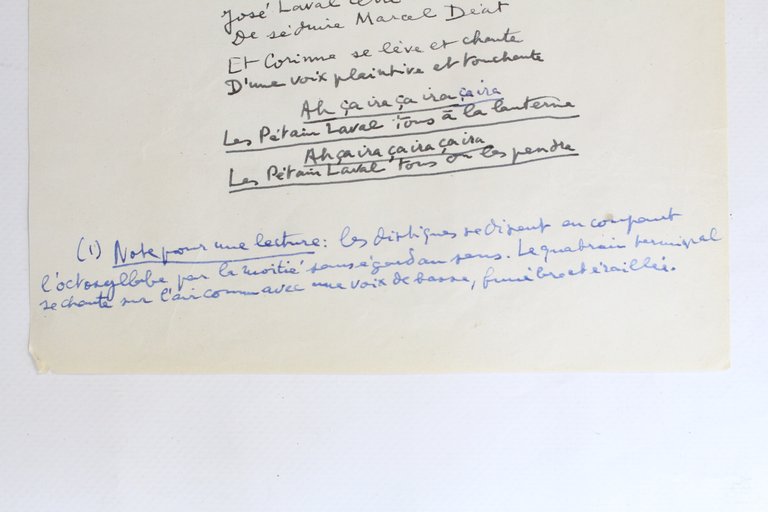 José Laval
De séduire Marcel Déat
Et Corinne se lève et chante
D'une voix plaintive et touchante
Ah ça ira ça ira ça ira
Les Pétain Laval Tous à la lanterne
Ah ça ira ça ira ça ira
Les Pétain Laval Tous on les pendra
(1) Note pour une lecture : les distiques se disent en coupant
l'octosyllabe par la moitié sans égard au sens. Le quatrain terminal
se chante sur l'air connu avec une voix de basse, funèbre et éraillée.